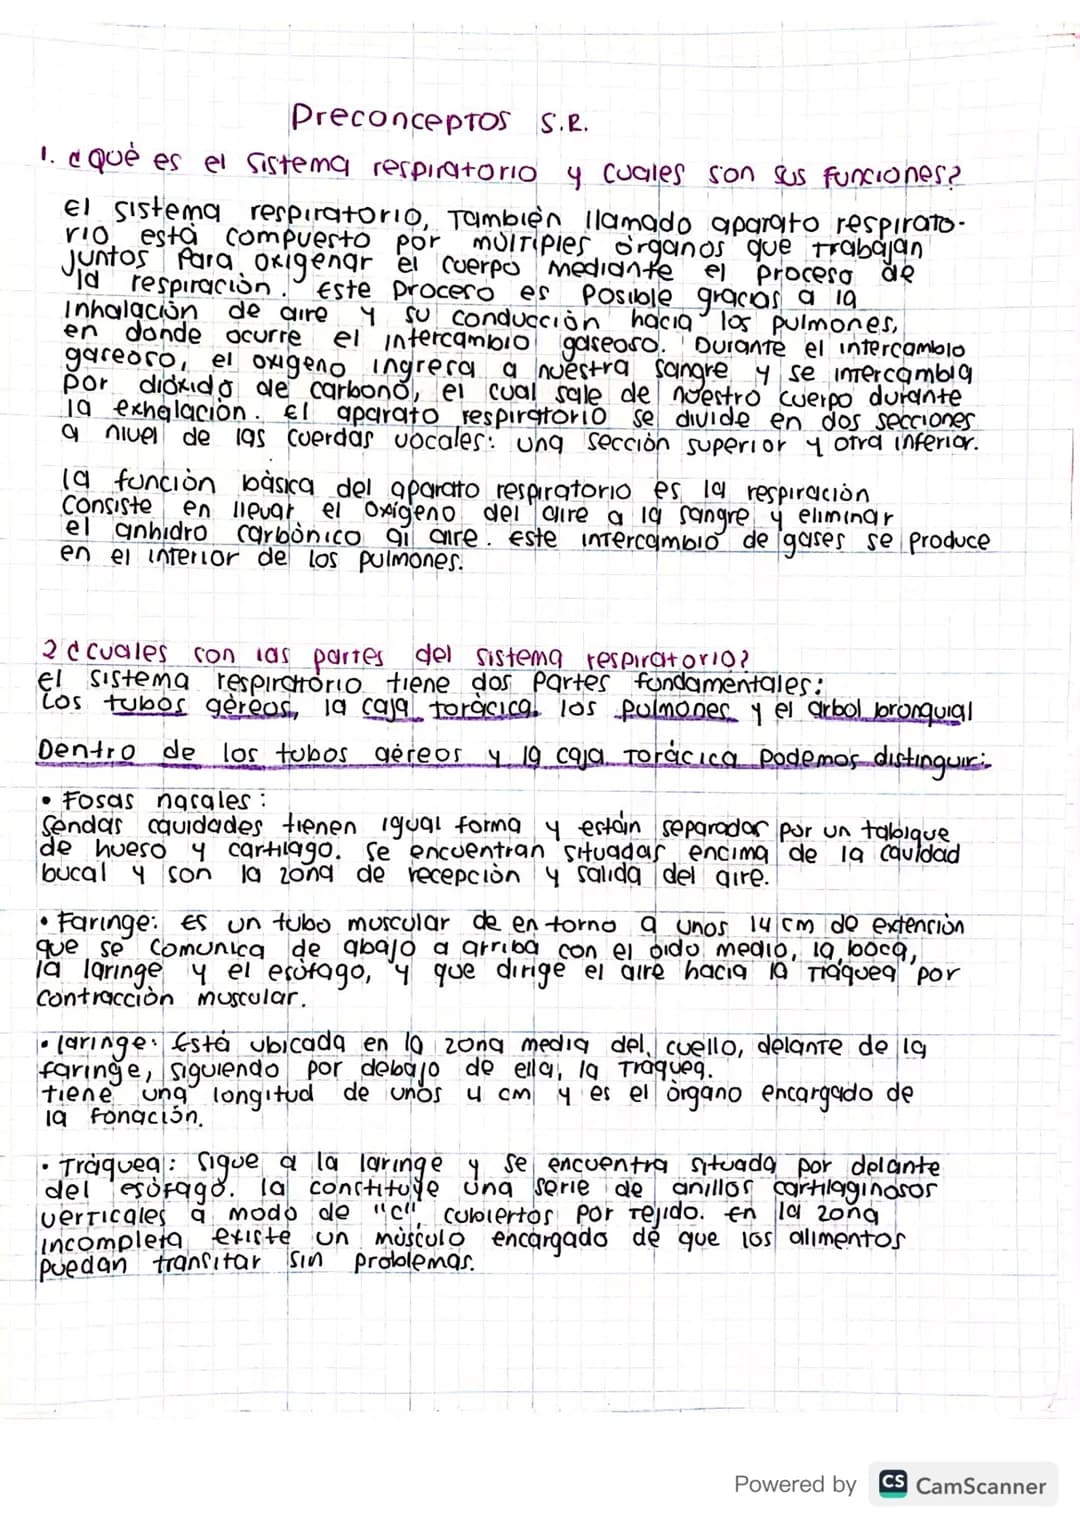 Preconceptos S.R.
1. ¿Què es el sistema respiratorio y cuales son sus funciones?
El sistema respiratorio, Tambièn llamado aparato respirato-
rio està compuesto por mùltiples òrganos que trabajan
juntos para oxigenar el cuerpo mediante el proceso de
la respiraciòn. Este proceso es posible gracias a la
Inhalaciòn de aire y su conducciòn hacia los pulmones,
en donde ocurre el intercambio gaseoso. Durante el intercambio
gaseoso, el oxigeno ingresa a nuestra sangre y se intercambia
por dióxido de carbono, el cual sale de nuestro cuerpo durante
la exhalaciòn. El aparato respiratorio se divide en dos secciones
a nivel de las cuerdas vocales: una secciòn superior y otra inferior.
la funciòn bàsica del aparato respiratorio es la respiraciòn
Consiste en llevar el oxígeno del aire a la sangre y eliminar
el anhidro carbònico al aire. Este intercambio de gases se produce
en el interior de los pulmones.
2 ¿cuales son las partes del sistema respiratorio?
El sistema respiratorio tiene dos partes fundamentales:
Los tubos aèreos, la caja toràcica, los pulmones y el arbol bronquial
Dentro de los tubos aèreos y la caja Toràcica podemos distinguir:
• Fosas nasales:
Sendas cavidades tienen igual forma y estàn separados por un tabique
de hueso y cartilago. Se encuentran situadas encima de la cavidad
bucal y son la zona de recepciòn y salida del aire.
• Faringe: Es un tubo muscular de en torno a unos 14 cm de extenciòn
que se comunica de abajo a arriba con el oido medio, la boca,
la laringe y el esòfago, y que dirige el aire hacia la Tràquea por
contracciòn muscular.
• laringe: Està ubicada en la zona media del cuello, delante de la
faringe, siguiendo por debajo de ella, la Tràquea.
Tiene una longitud de unos 4 cm y es el òrgano encargado de
la fonaciòn.
• Tràquea: Sigue a la laringe y se encuentra situada por delante
del esòfago. la constituye una serie de anillos cartilaginosos
verticales a modo de "C", cubiertos por tejido. En la zona
incompleta existe un mùsculo encargado de que los alimentos
puedan transitar sin problemas.
Powered by CS CamScanner